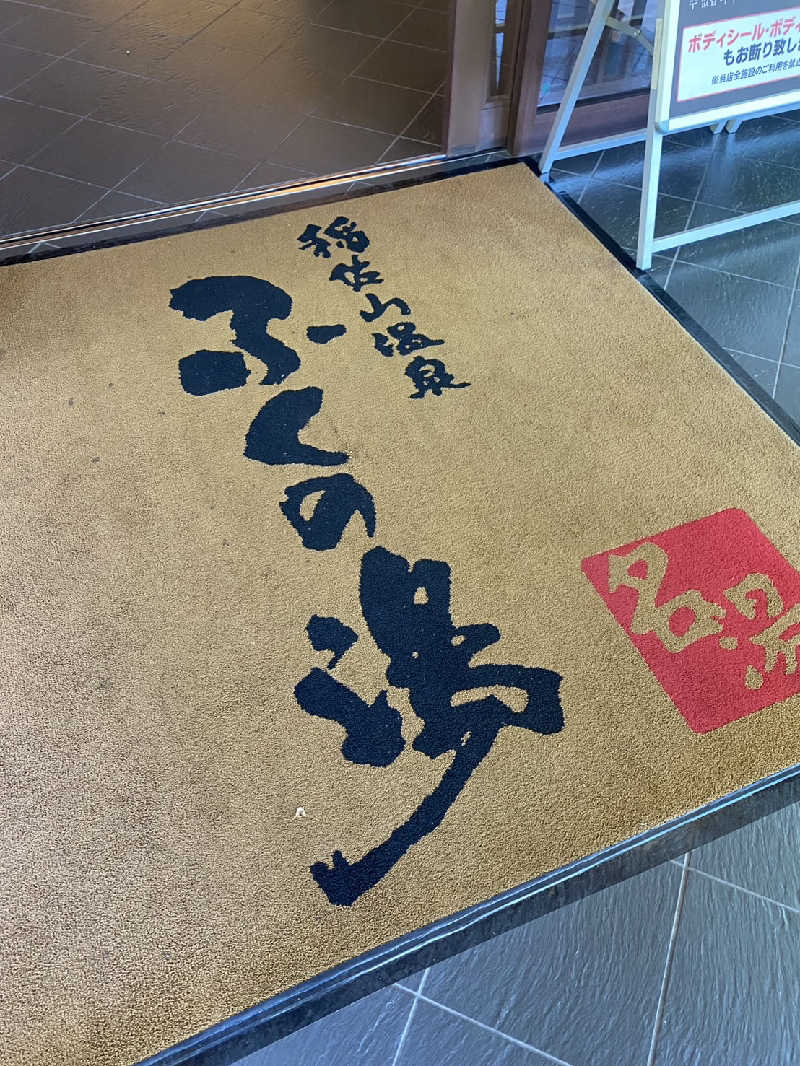 稲佐山温泉
ふくの湯
名湯
ボディシール・ボディ
もお断り致し